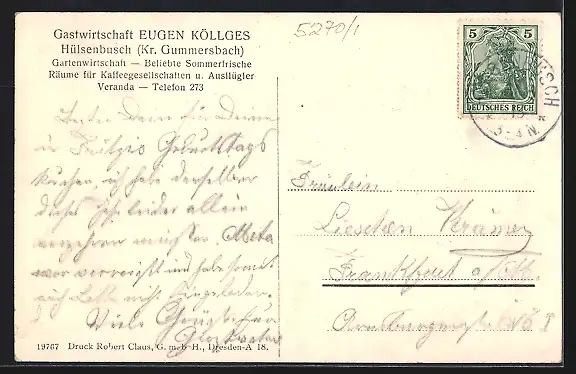 Gastwirtschaft EUGEN KÖLLGES
Hülsenbusch (Kr. Gummersbach)
Gartenwirtschaft — Beliebte Sommerfrische
Räume für Kaffeegesellschaften u. Ausflügler
Veranda — Telefon 273
5270/1
5 5
DEUTSCHES REICH
Besten Dank für Deinen
u. Fritzis Geburtstags
kuchen, ich habe denselben
dieses Jahr leider allein
verzehren müssen. Meta
war verreist und habe sonst
auch nicht eingeladen.
Viele Grüße
Fräulein
Lieschen Krämer
Frankfurt a/M.
19767 Druck Robert Claus, G. m. b. H., Dresden-A 18.